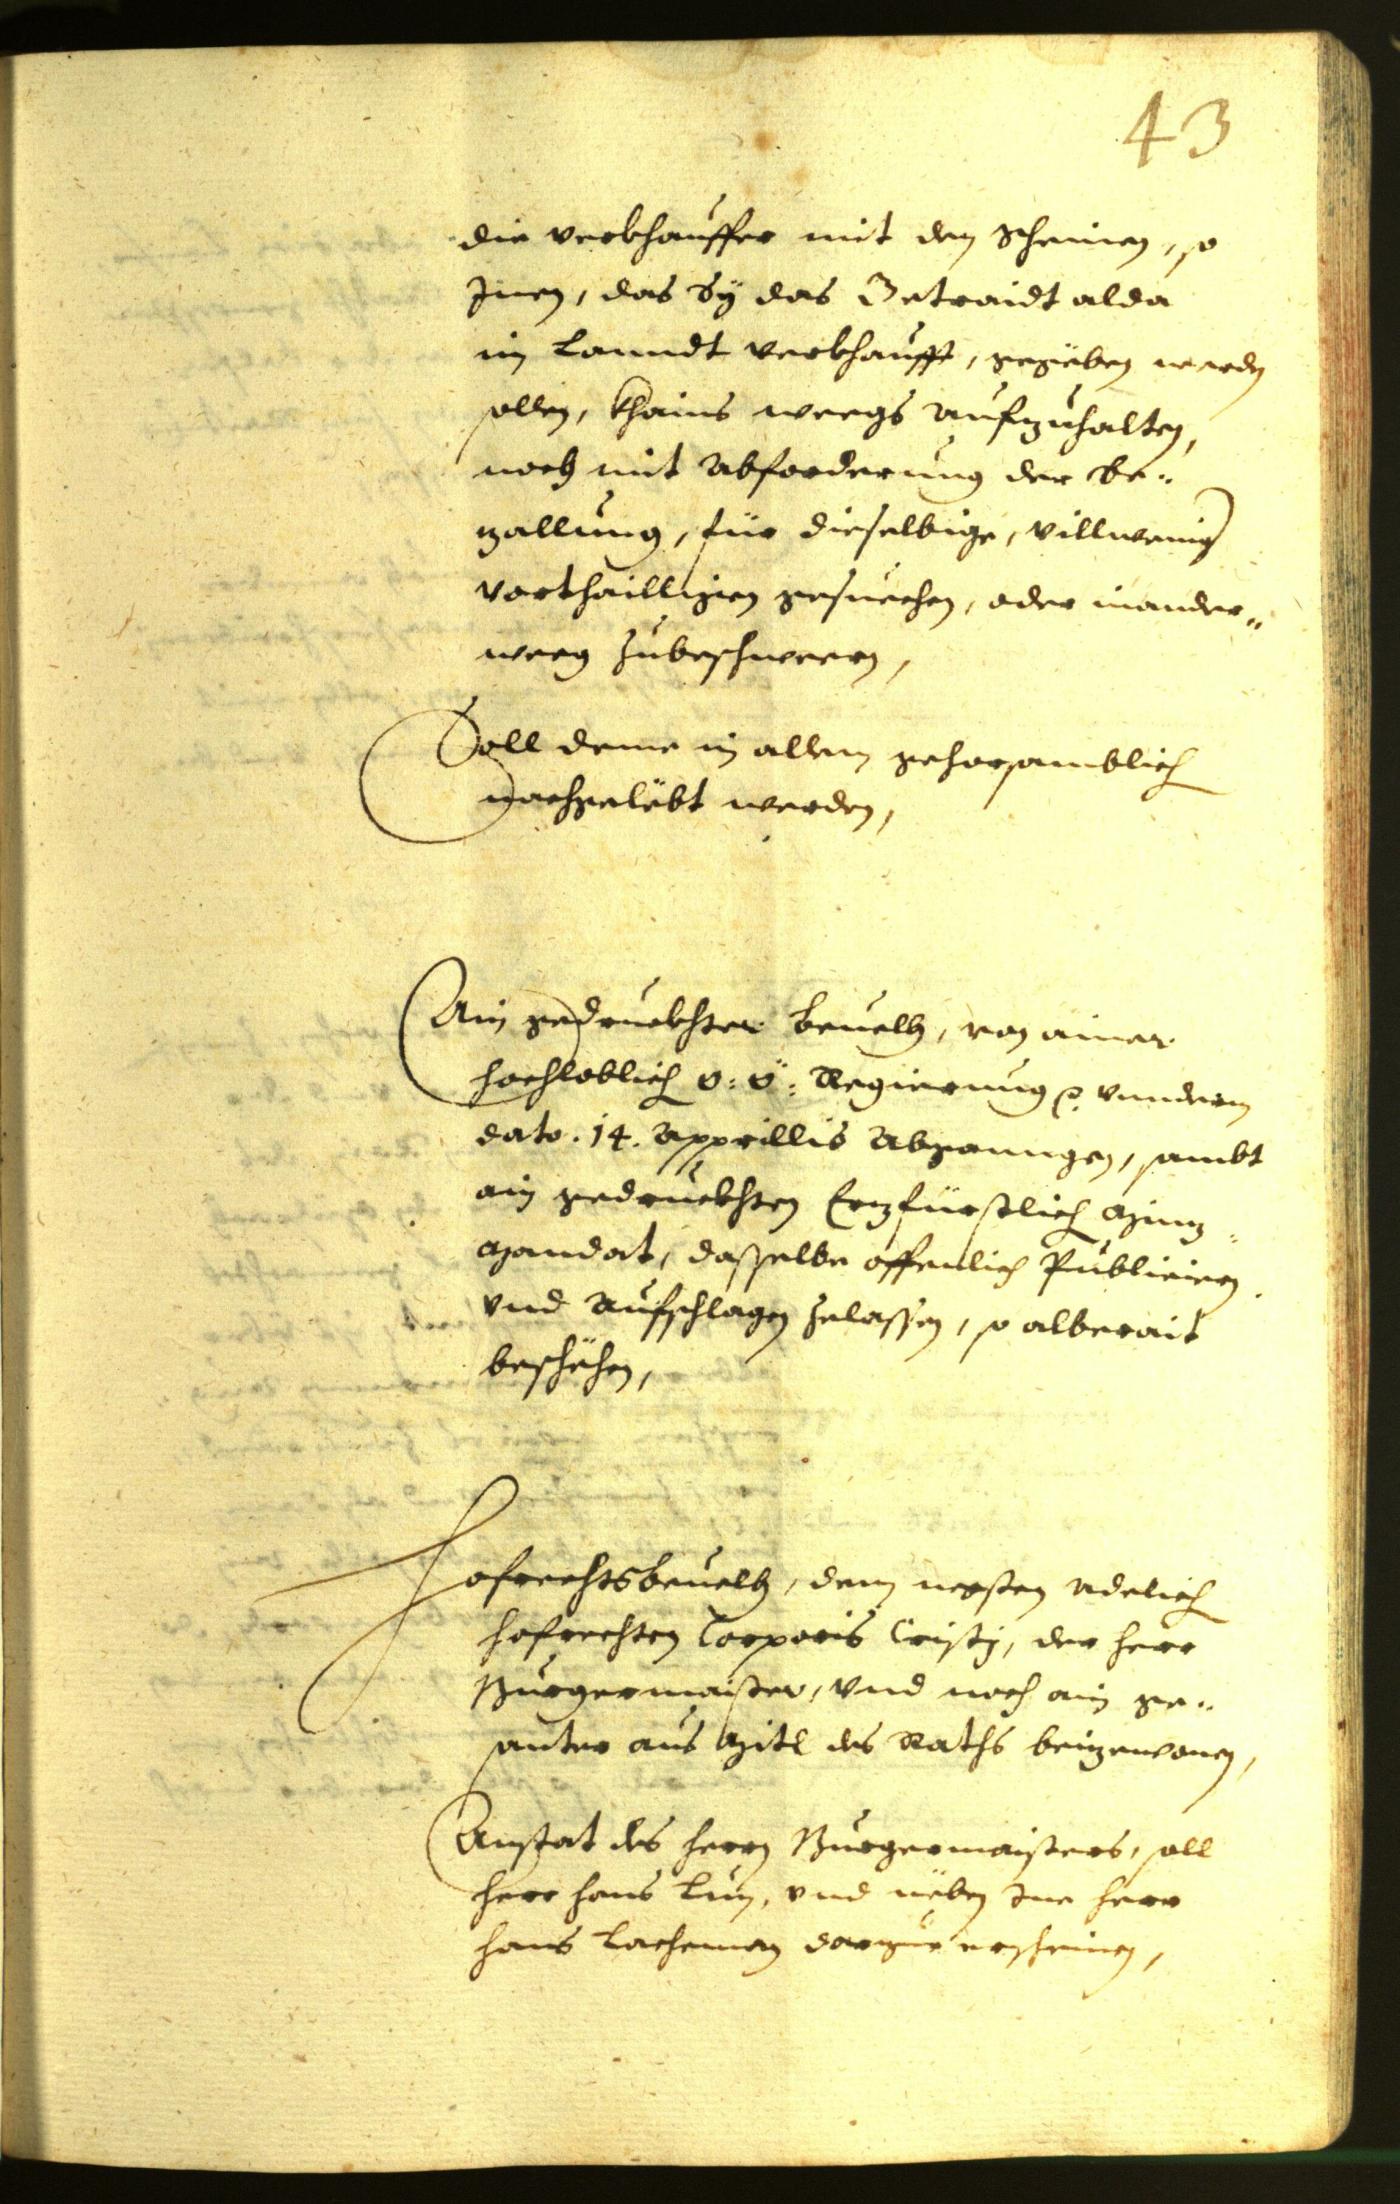 43
die verkhauffer mit den scheinen, so
Inen, das Sÿ das Getraidt alda
im Lanndt verkhaufft, gegëben werden
sollen, khains weegs aufzuhalten,
noch mit Abforderung der Be¬
zallung, für dieselbige, villwenig
vorthailligen gesuechen, oder inander¬
weeg zubeschweern,
Soll deme in allem gehorsamblich
nachgelëbt werden,
Ain gedruckhter Beuelh, von ainer
hochloblich o: ö: Regierung vnnderm
dato .14. Apprillis Abganngen, sambt
ain gedruckhten Erzfürstlich Münz¬
Mandat, dasselbe offenlich Publiciern
vnd Aufschlagen zelassen, so alberait
beschëhen,
Hofrechtsbeuelh, dem negsten Adelich
hofrechten Corporis Cristj, der herr
Burgermaister, vnd noch ain ge¬
santer aus Mitl des Raths beizewonen,
Anstat des herrn Burgermaisters, soll
herr hans Lun, vnd nëben Ine herr
hans Lacheman darzue erscheinen,